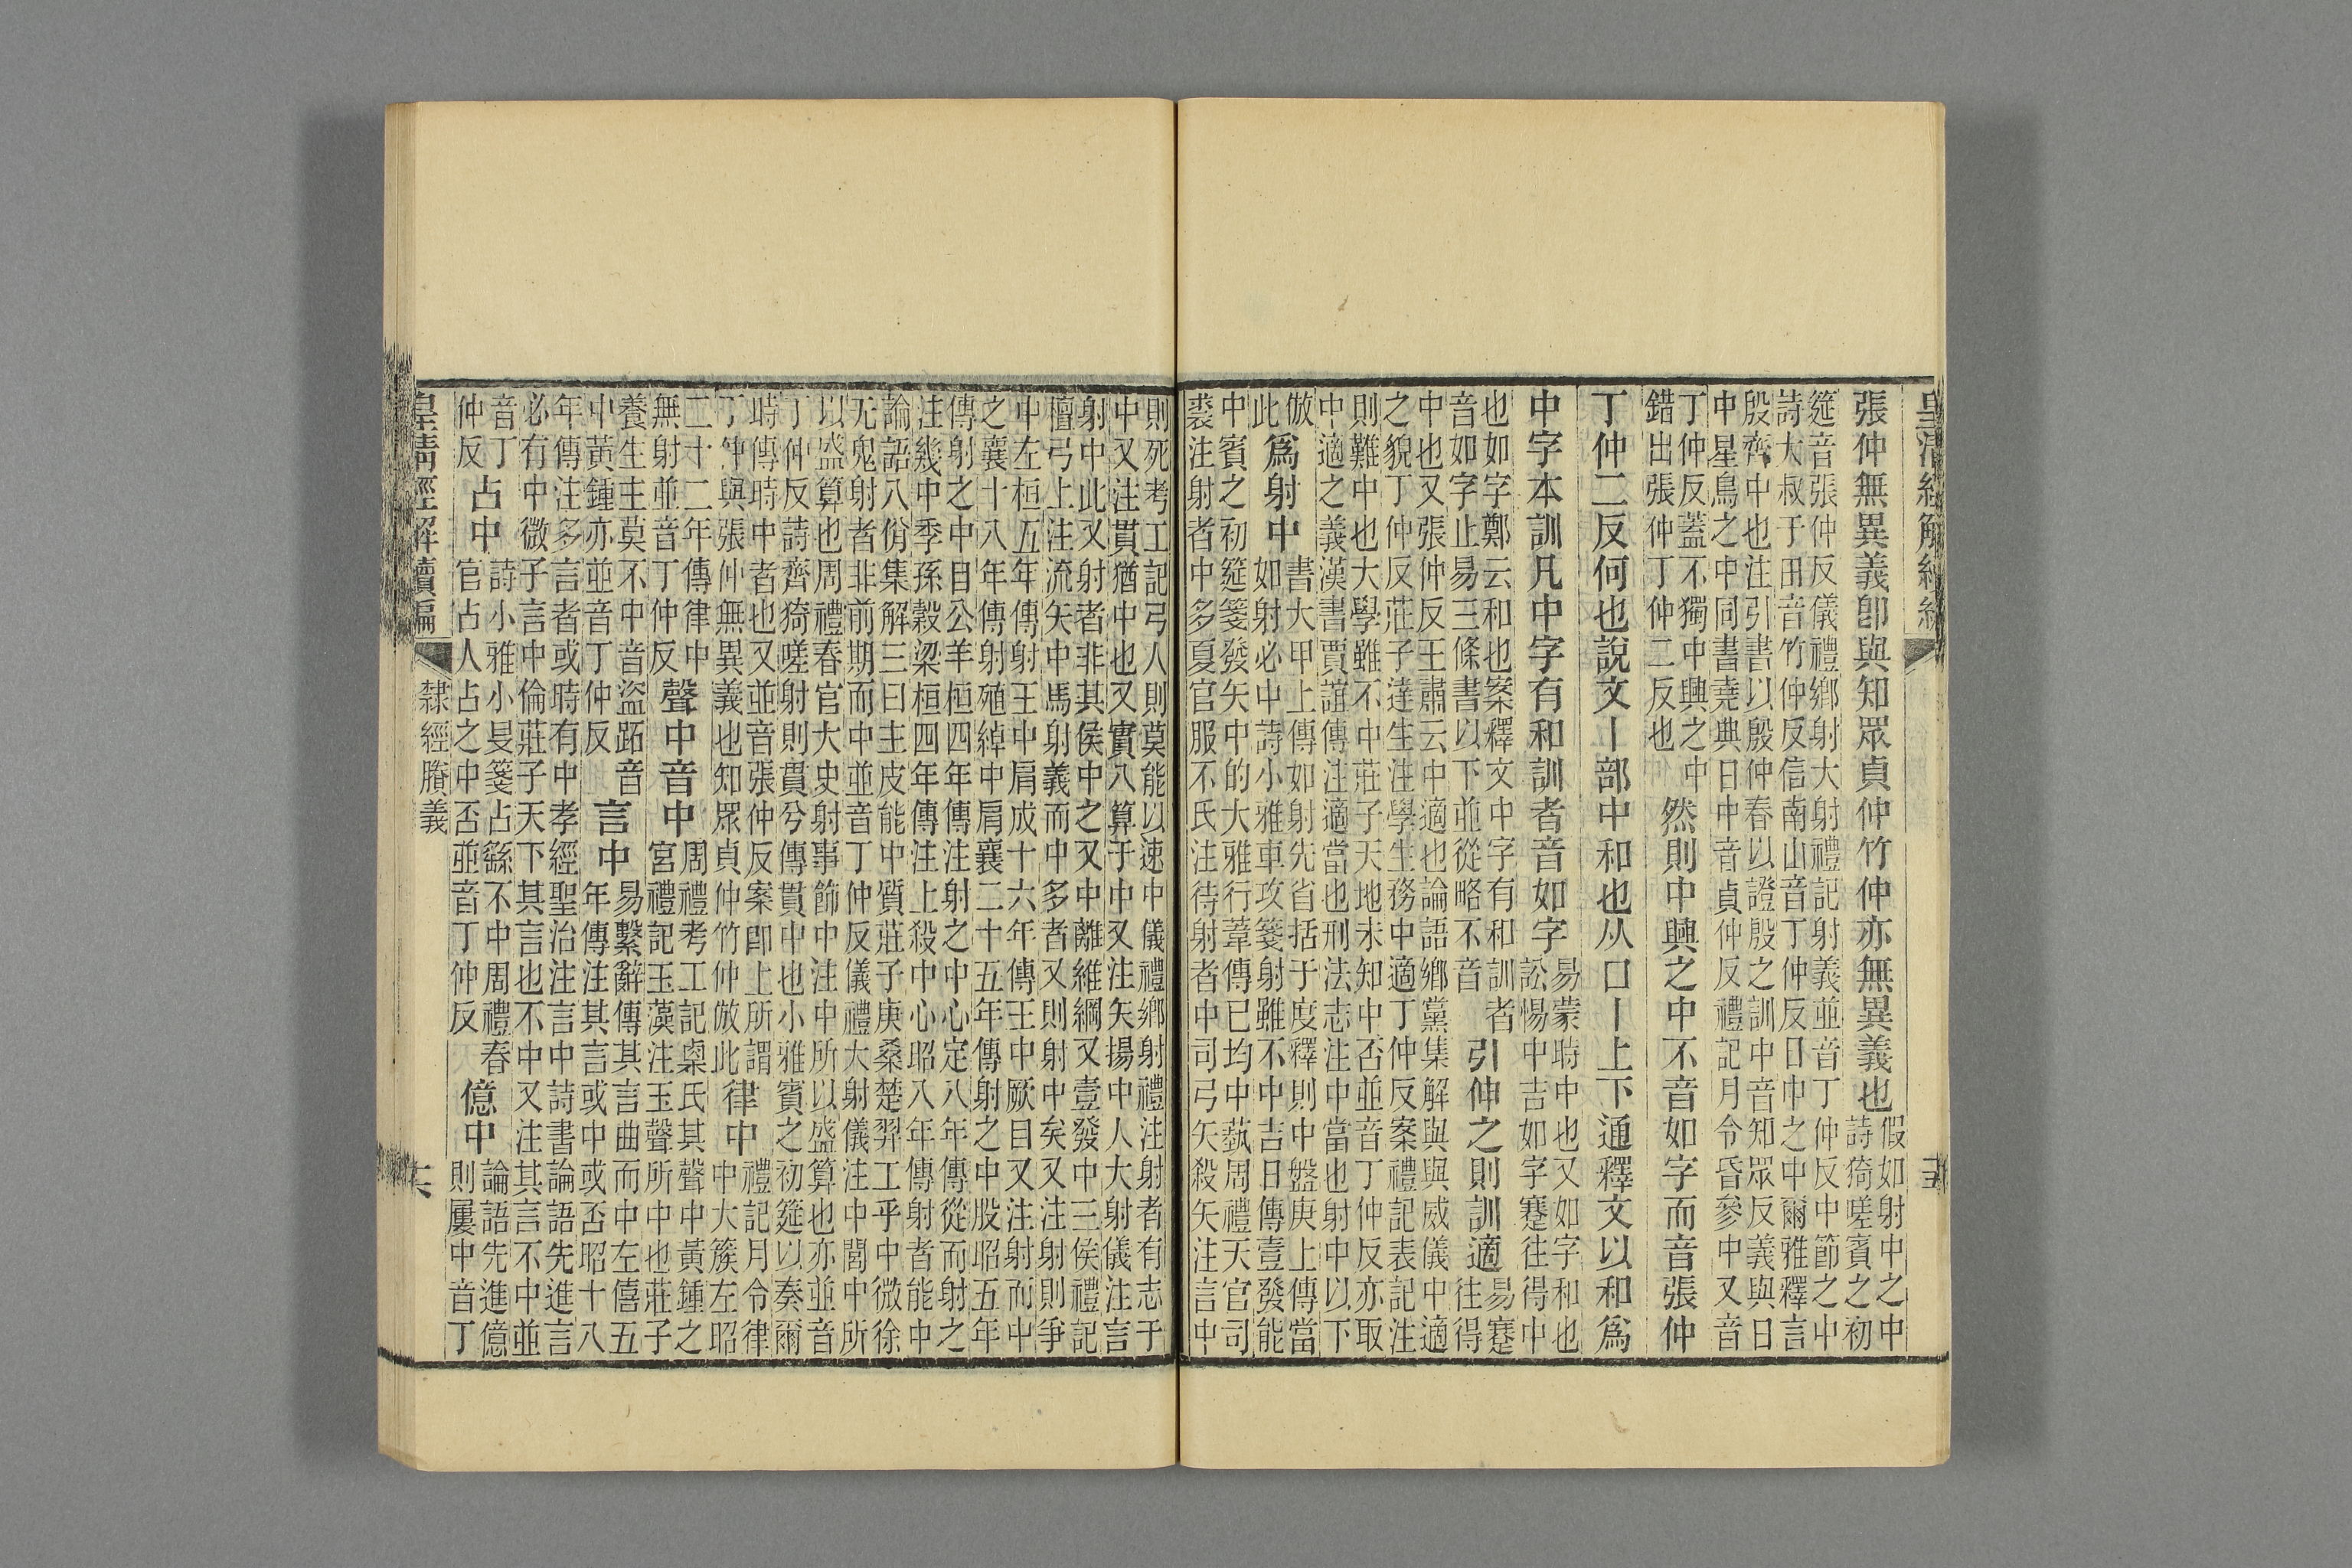 張仲無異義卽與知眾貞仲竹仲亦無異義也
假如射中之中
詩猗嗟賓之初
筵音張仲反儀禮鄉射大射禮記射義並音丁仲反中節之中
詩大叔于田音竹仲反信南山音丁仲反日中之中爾雅釋言
殷齊中也注引書以殷仲春以證殷之訓中音知眾反義與日
中星鳥之中同書堯典日中音貞仲反禮記月令昏參中又音
丁仲反蓋不獨中興之中
錯出張仲丁仲二反也
然則中興之中不音如字而音張仲
丁仲二反何也說文丨部中和也从口丨上下通釋文以和爲
中字本訓凡中字有和訓者音如字
易蒙時中也又如字和也
訟惕中吉如字蹇往得中
也如字鄭云和也案釋文中字有和訓者
音如字止易三條書以下並從略不音
引伸之則訓適
易蹇
往得
中也又張仲反王肅云中適也論語鄉黨集解與與威儀中適
之貌丁仲反莊子達生注學生務中適丁仲反案禮記表記注
則難中也大學雖不中莊子天地未知中否並音丁仲反亦取
中適之義漢書賈誼傳注適當也刑法志注中當也射中以下
倣
此
爲射中
書大甲上傳如射先省括于度釋則中盤庚上傳當
如射必中詩小雅車攻箋射雖不中吉日傳壹發能
中賓之初筵箋發矢中的大雅行葦傳已均中蓺周禮天官司
裘注射者中多夏官服不氏注待射者中司弓矢殺矢注言中
則死考工記弓人則莫能以速中儀禮鄉射禮注射者有志于
中又注貫猶中也又實八算于中又注矢揚中人大射儀注言
射中此又射者非其侯中之又中離維綱又壹發中三侯禮記
檀弓上注流矢中馬射義而中多者又則射中矣又注射則爭
中左桓五年傳射王中肩成十六年傳王中厥目又注射而中
之襄十八年傳射殖綽中肩襄二十五年傳射之中股昭五年
傳射之中目公羊桓四年傳注射之中心定八年傳從而射之
注幾中季孫穀梁桓四年傳注上殺中心昭八年傳射者能中
論語八佾集解三曰主皮能中質莊子庚桑楚羿工乎中微徐
无鬼射者非前期而中並音丁仲反儀禮大射儀注中閎中所
以盛算也周禮春官大史射事飾中注中所以盛算也亦並音
丁仲反詩齊猗嗟射則貫兮傳貫中也小雅賓之初筵以奏爾
時傳時中者也又並音張仲反案卽上所謂
丁仲與張仲無異義也知眾貞仲竹仲倣此
律中
禮記月令律
中大簇左昭
二十二年傳律中
無射並音丁仲反
聲中音中
周禮考工記㮚氏其聲中黃鍾之
宮禮記玉藻注玉聲所中也莊子
養生主莫不中音盜跖音
中黃鍾亦並音丁仲反
言中
易繫辭傳其言曲而中左僖五
年傳注其言或中或否昭十八
年傳注多言者或時有中孝經聖治注言中詩書論語先進言
必有中微子言中倫莊子天下其言也不中又注其言不中並
音丁
仲反
占中
詩小雅小旻箋占繇不中周禮春
官占人占之中否並音丁仲反
億中
論語先進億
則屢中音丁
皇清經解續編
隸經賸義